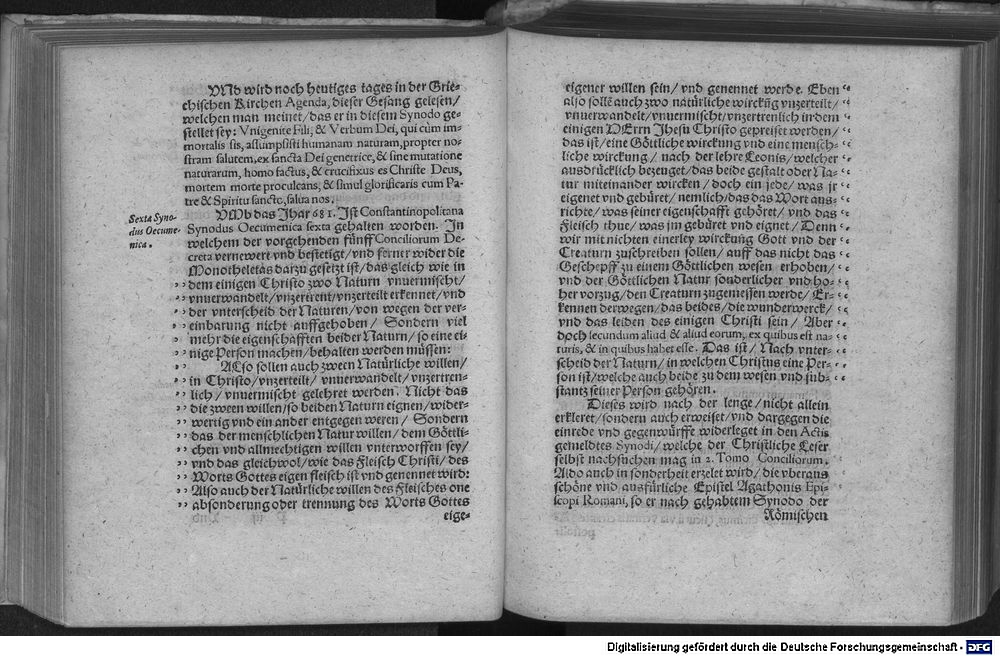 VNd wird noch heutiges tages in der Grie-
chischen Kirchen Agenda, dieser Gesang gelesen/
welchen man meinet/das er in diesem Synodo ge-
stellet sey: Vnigenite Fili, & Verbum Dei, qui cùm im-
mortalis sis, assumpsisti humanam naturam, propter no-
stram salutem, ex sancta Dei genetrice, & sine mutatione
naturarum, homo factus, & crucifixus es Christe Deus,
mortem morte proculcans, & simul glorificaris cum Pa-
tre & Spiritu sancto, salua nos.
Sexta Syno-
dus Oecume-
nica.
VMb das Jhar 681. Jst Constantinopolitana
Synodus Oecumenica sexta gehalten worden. Jn
welchem der vorgehenden fünff Conciliorum De-
creta vernewert vnd bestetigt/vnd ferner wider die
Monotheletas darzu gesetzt ist/das gleich wie in
dem einigen Christo zwo Naturn vnuermischt/
vnuerwandelt/vnzertrent/vnzerteilt erkennet/vnd
der vnterscheid der Naturen/von wegen der ver-
einbarung nicht auffgehoben/ Sondern viel
mehr die eigenschafften beider Naturn/so eine ei-
nige Person machen/behalten werden müssen:
ALso sollen auch zween Natürliche willen/
in Christo/vnzerteilt/ vnuerwandelt/ vnzertren-
lich/vnuermischt gelehret werden. Nicht das
die zween willen/so beiden Naturn eignen/wider-
wertig vnd ein ander entgegen weren/ Sondern
das der menschlichen Natur willen/ dem Göttli-
chen vnd allmechtigen willen vnterworffen sey/
vnd das gleichwol/wie das Fleisch Christi/ des
Worts Gottes eigen fleisch ist vnd genennet wird:
Also auch der Natürliche willen des Fleisches one
absonderung oder trennung des Worts Gottes
eige-
eigener willen sein/ vnd genennet werde. Eben
also sollē auch zwo natürliche wirckūg vnzerteilt/
vnuerwandelt/vnuermischt/vnzertrenlich in dem
einigen HErrn Jhesu Christo gepreiset werden/
das ist/eine Göttliche wirckung vnd eine mensch-
liche wirckung/ nach der lehre Leonis/ welcher
ausdrücklich bezeuget/das beide gestalt oder Na-
tur miteinander wircken/doch ein jede/ was jr
eignet vnd gebüret/nemlich/das das Wort aus-
richte/ was seiner eigenschafft gehöret/ vnd das
Fleisch thue/was jm gebürt vnd eignet/ Denn
wir mit nichten einerley wirckung Gott vnd der
Creaturn zuschreiben sollen/ auff das nicht das
Geschepff zu einem Göttlichen wesen erhoben/
vnd der Göttlichen Natur sonderlicher vnd ho-
her vorzug/den Creaturn zugemessen werde/ Er-
kennen derwegen/das beides/die wunderwerck/
vnd das leiden des einigen Christi sein/ Aber
doch secundum aliud & aliud eorum, ex quibus est na-
turis, & in quibus habet esse. Das ist/ Nach vnter-
scheid der Naturn/ in welchen Christus eine Per-
son ist/welche auch beide zu dem wesen vnd sub-
stantz seiner Person gehören.
Dieses wird nach der lenge/nicht allein
erkleret/sondern auch erweiset/vnd dargegen die
einrede vnd gegenwürffe widerleget in den Actis
gemeldtes Synodi/ welche der Christliche Leser
selbst nachsuchen mag in 2. Tomo Conciliorum.
Aldo auch in sonderheit erzelet wird/ die vberaus
schöne vnd ausfürliche Epistel Agathonis Epi-
scopi Romani, so er nach gehabtem Synodo der
Römischen
Digitalisierung gefördert durch die Deutsche Forschungsgemeinschaft - DFG